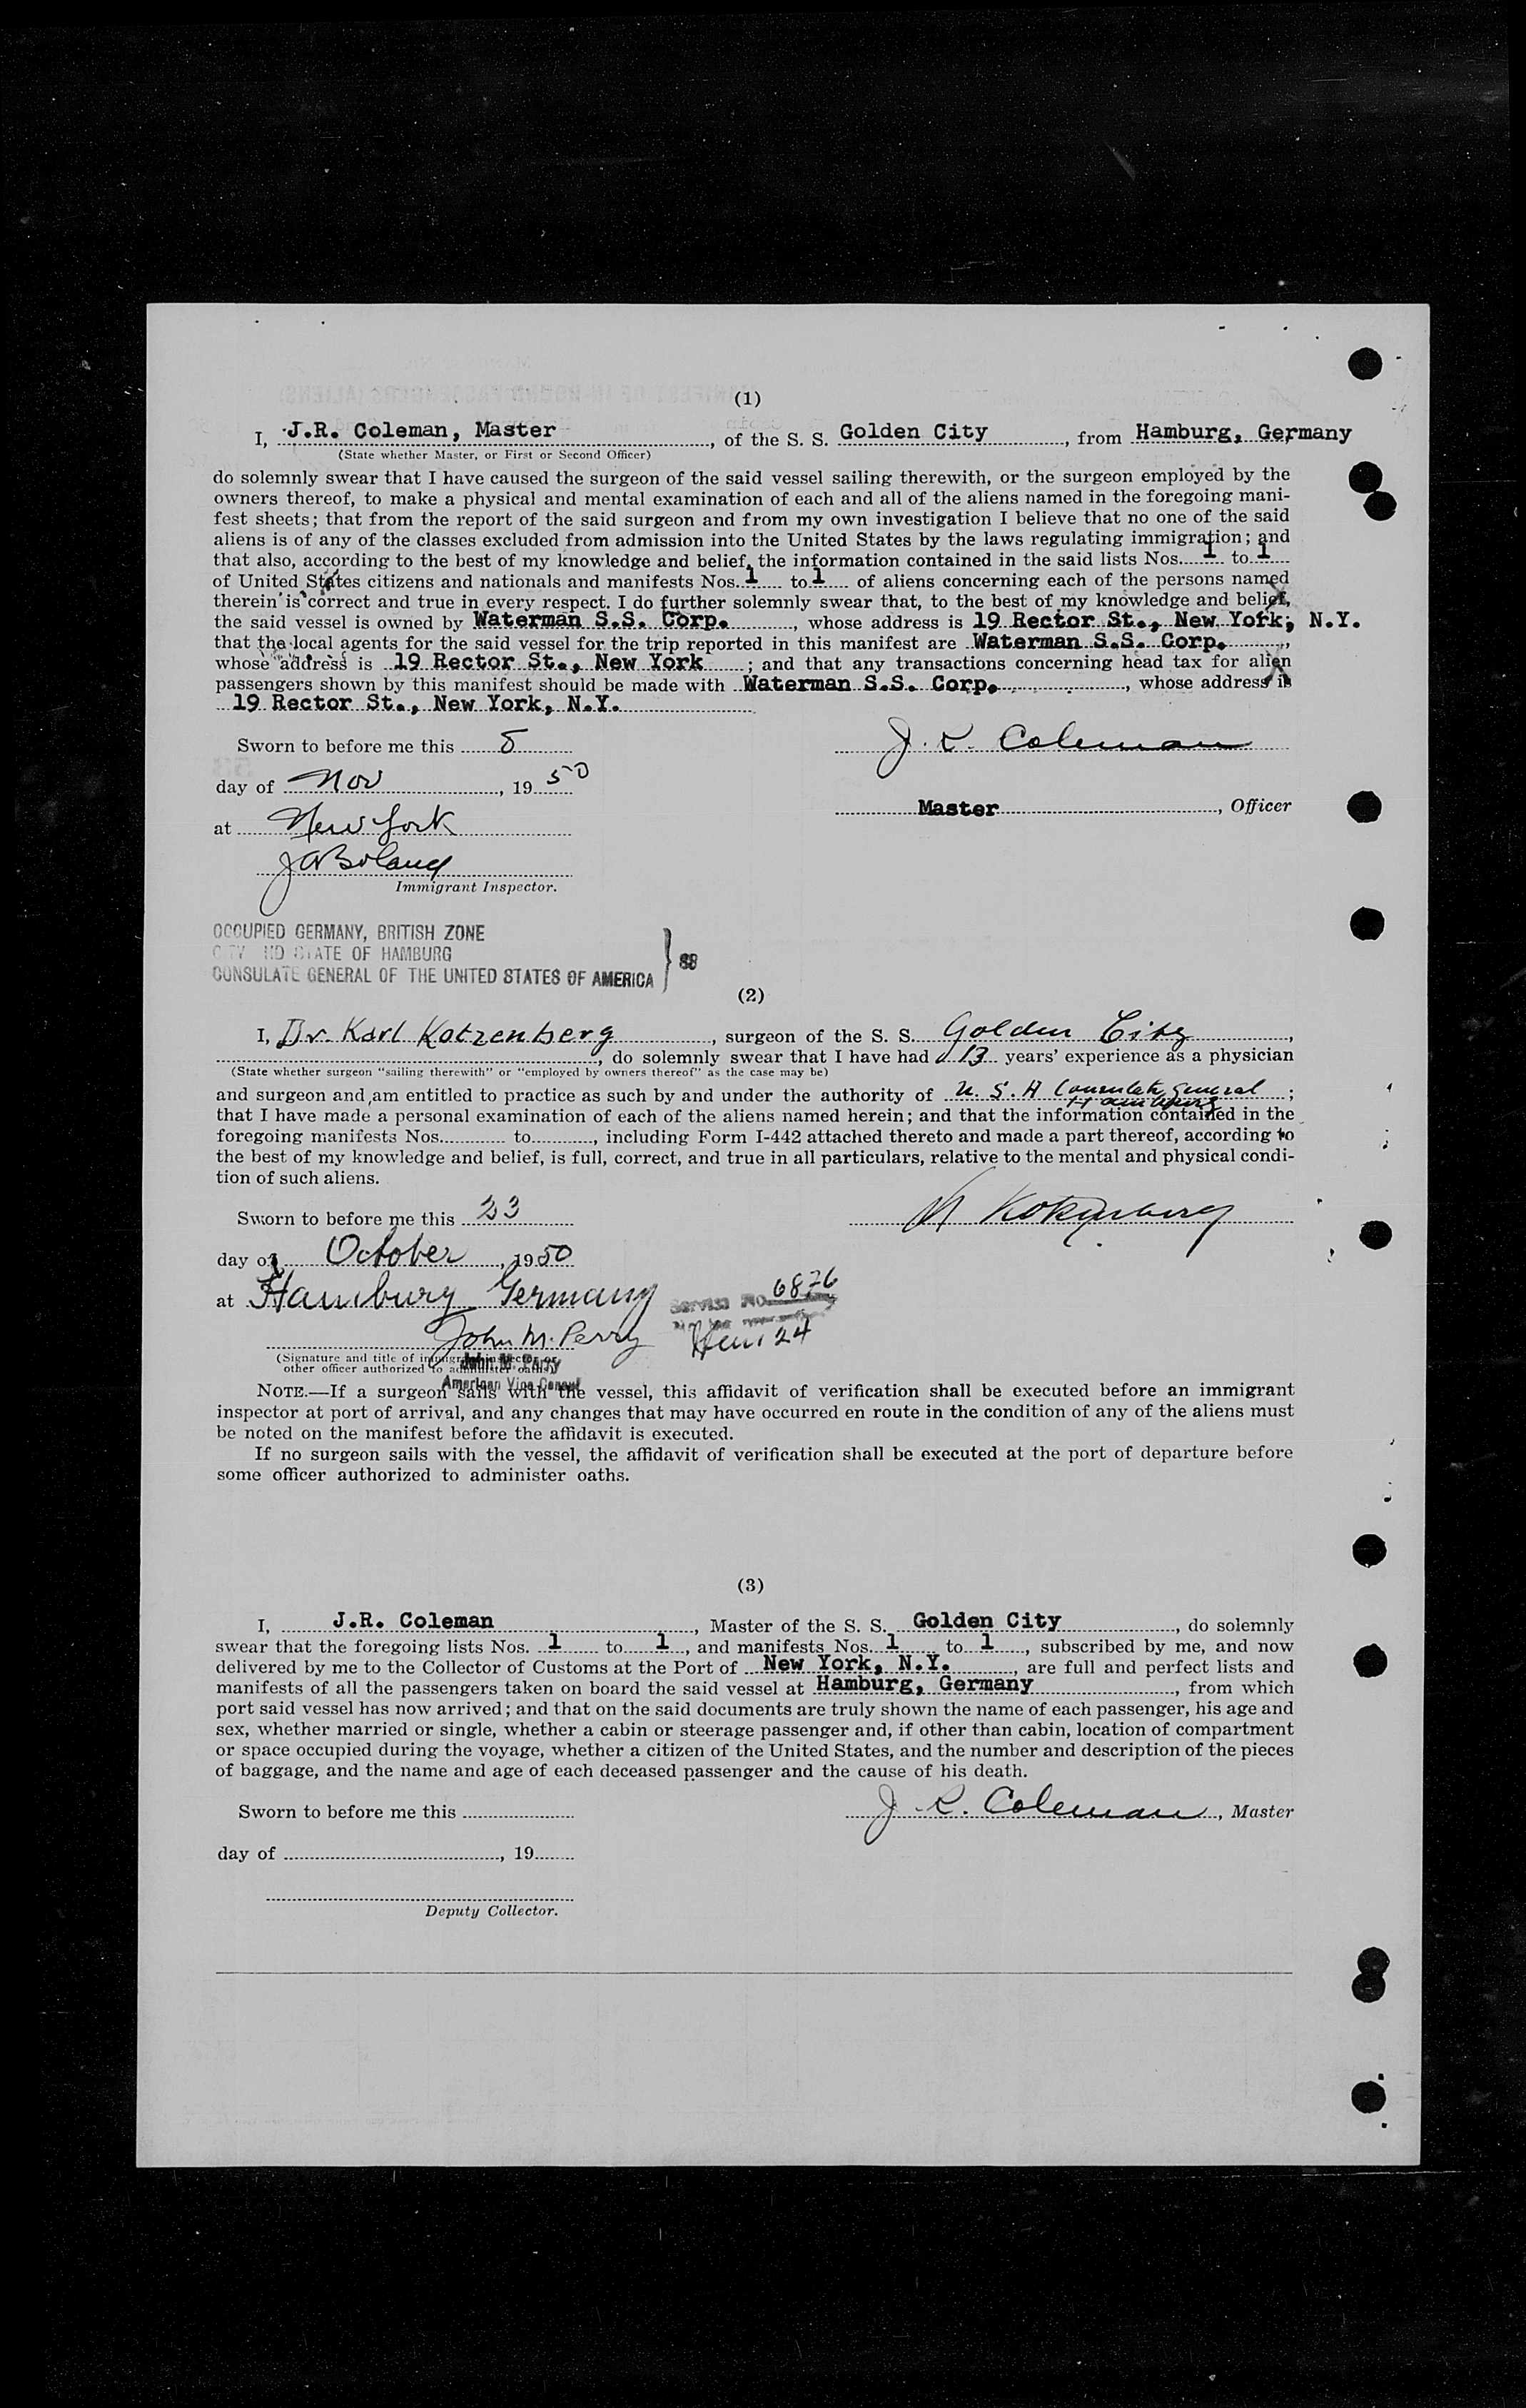 (1)
I, J.R. Coleman, Master, of the S. S. Golden City, from Hamburg, Germany
(State whether Master, or First or Second Officer)
do solemnly swear that I have caused the surgeon of the said vessel sailing therewith, or the surgeon employed by the
owners thereof, to make a physical and mental examination of each and all of the aliens named in the foregoing mani-
fest sheets; that from the report of the said surgeon and from my own investigation I believe that no one of the said
aliens is of any of the classes excluded from admission into the United States by the laws regulating immigration; and
that also, according to the best of my knowledge and belief, the information contained in the said lists Nos. 1 to 1
of United States citizens and nationals and manifests Nos. 1 to 1 of aliens concerning each of the persons named
therein is correct and true in every respect. I do further solemnly swear that, to the best of my knowledge and belief,
the said vessel is owned by Waterman S.S. Corp., whose address is 19 Rector St., New York, N.Y.
that the local agents for the said vessel for the trip reported in this manifest are Waterman S.S. Corp.,
whose address is 19 Rector St., New York; and that any transactions concerning head tax for alien
passengers shown by this manifest should be made with Waterman S.S. Corp., whose address is
19 Rector St., New York, N.Y.
Sworn to before me this 8
J. R. Coleman
day of Nov, 1950
Master, Officer
at New York
JABoland
Immigrant Inspector.
OCCUPIED GERMANY, BRITISH ZONE
STATE OF HAMBURG
CONSULATE GENERAL OF THE UNITED STATES OF AMERICA } SS
(2)
I, Dr. Karl Kotzenberg, surgeon of the S. S. Golden City,
, do solemnly swear that I have had 13 years' experience as a physician
(State whether surgeon "sailing therewith" or "employed by owners thereof" as the case may be)
and surgeon and am entitled to practice as such by and under the authority of U. S. A Consulate General Hamburg;
that I have made a personal examination of each of the aliens named herein; and that the information contained in the
foregoing manifests Nos. to, including Form I-442 attached thereto and made a part thereof, according to
the best of my knowledge and belief, is full, correct, and true in all particulars, relative to the mental and physical condi-
tion of such aliens.
Sworn to before me this 23
K Kotzenberg
day of October, 1950
at Hamburg Germany
Service No. 6826
John M. Perry
Item 24
(Signature and title of immigrant inspector or
other officer authorized to administer oaths)
John M. Perry
American Vice Consul
NOTE.—If a surgeon sails with the vessel, this affidavit of verification shall be executed before an immigrant
inspector at port of arrival, and any changes that may have occurred en route in the condition of any of the aliens must
be noted on the manifest before the affidavit is executed.
If no surgeon sails with the vessel, the affidavit of verification shall be executed at the port of departure before
some officer authorized to administer oaths.
(3)
I, J.R. Coleman, Master of the S. S. Golden City, do solemnly
swear that the foregoing lists Nos. 1 to 1, and manifests Nos. 1 to 1, subscribed by me, and now
delivered by me to the Collector of Customs at the Port of New York, N.Y., are full and perfect lists and
manifests of all the passengers taken on board the said vessel at Hamburg, Germany, from which
port said vessel has now arrived; and that on the said documents are truly shown the name of each passenger, his age and
sex, whether married or single, whether a cabin or steerage passenger and, if other than cabin, location of compartment
or space occupied during the voyage, whether a citizen of the United States, and the number and description of the pieces
of baggage, and the name and age of each deceased passenger and the cause of his death.
Sworn to before me this
J. R. Coleman, Master
day of, 19
Deputy Collector.